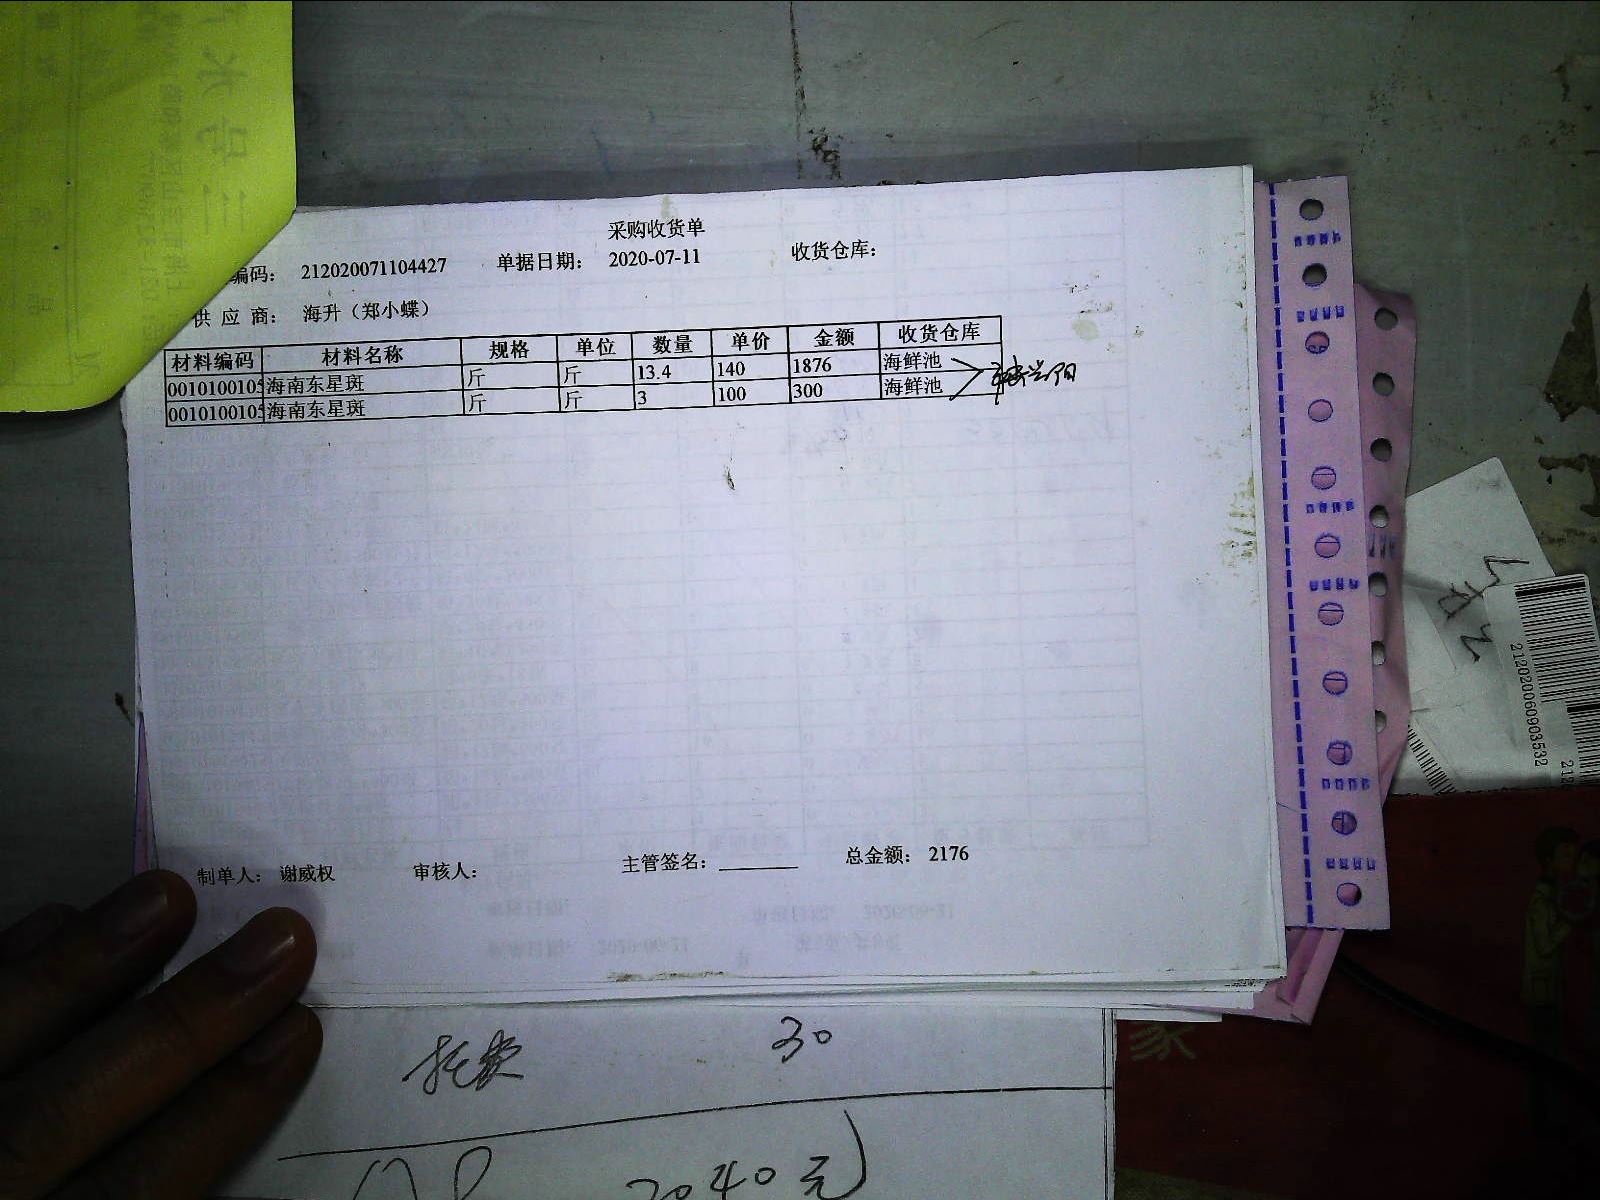 采购收货单
编码： 212020071104427 单据日期： 2020-07-11 收货仓库：
供 应 商： 海升（郑小蝶）
材料编码 材料名称 规格 单位 数量 单价 金额 收货仓库
0010100105 海南东星斑 斤 斤 13.4 140 1876 海鲜池
0010100105 海南东星斑 斤 斤 3 100 300 海鲜池
制单人： 谢威权 审核人： 主管签名： 总金额： 2176
30
2040元
212020060903532
212